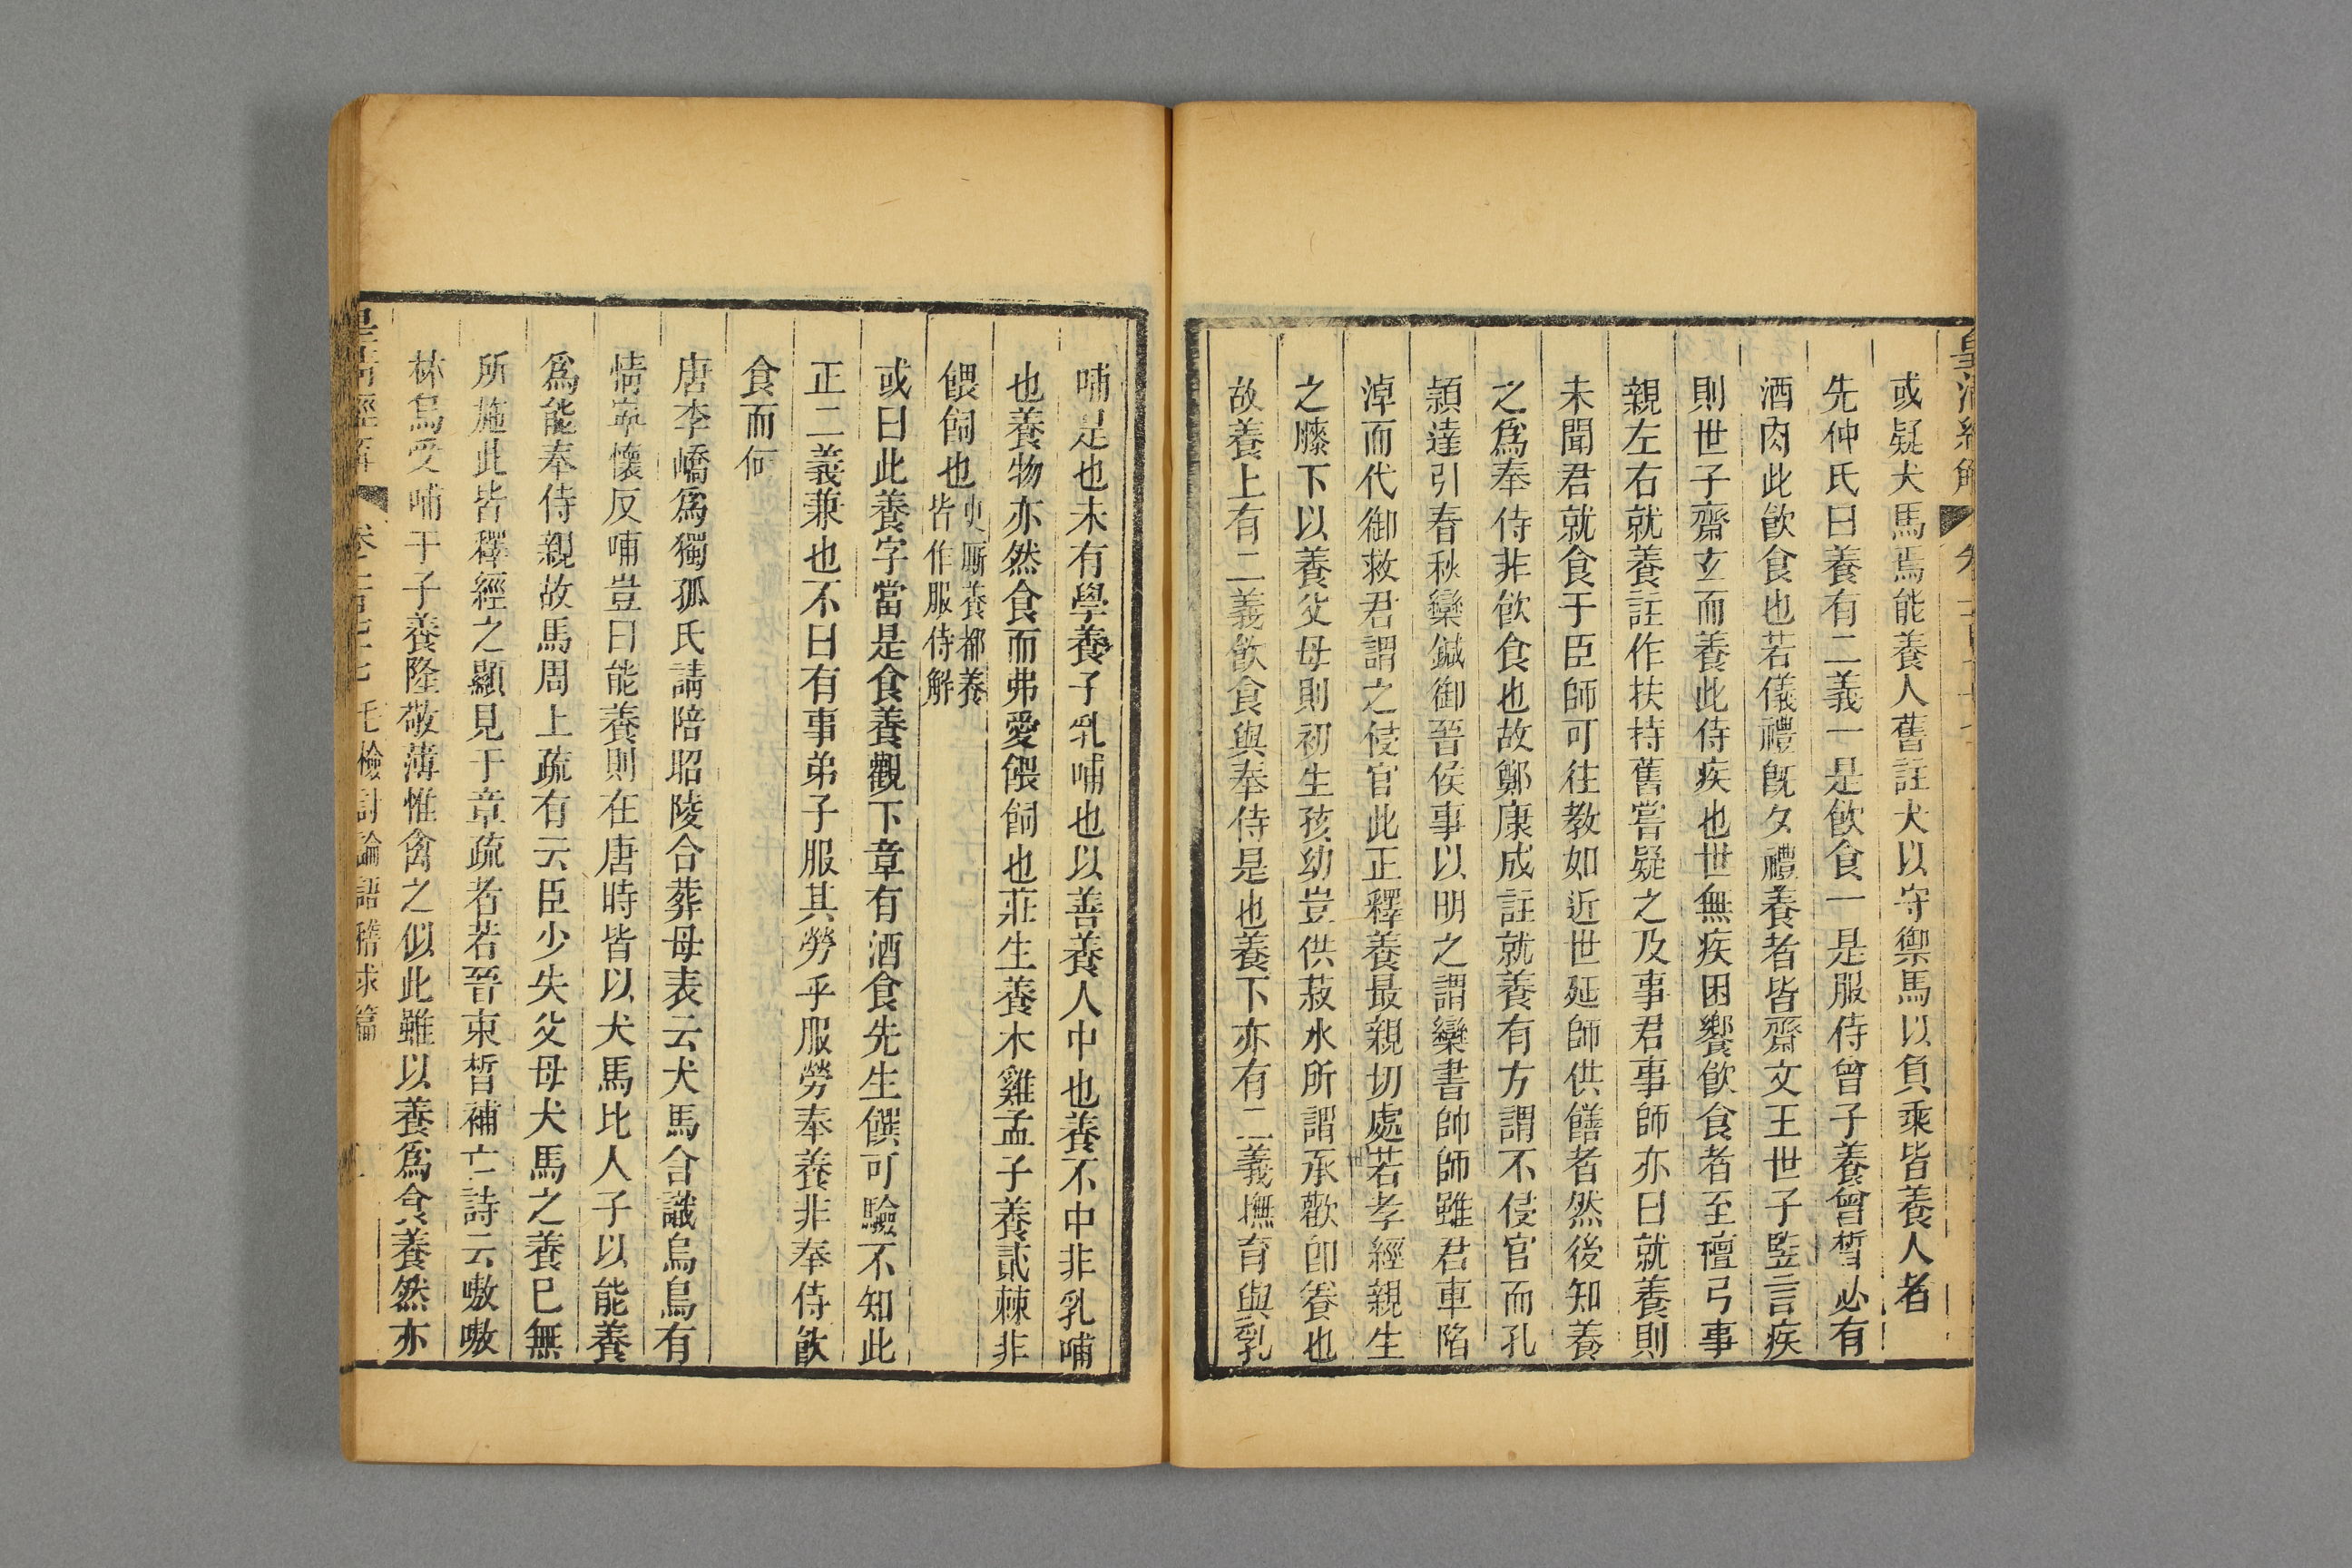 皇清經解
或疑犬馬焉能養人舊註犬以守禦馬以負乘皆養人者
先仲氏曰養有二義一是飲食一是服侍曾子養曾晳必有
酒肉此飲食也若儀禮旣夕禮養者皆齋文王世子監言疾
則世子齋玄而養此侍疾也世無疾困饗飲食者至檀弓事
親左右就養註作扶持舊嘗疑之及事君事師亦曰就養則
未聞君就食于臣師可往教如近世延師供饍者然後知養
之爲奉侍非飲食也故鄭康成註就養有方謂不侵官而孔
頴達引春秋欒鍼御晉侯事以明之謂欒書帥師雖君車陷
淖而代御救君謂之侵官此正釋養最親切處若孝經親生
之膝下以養父母則初生孩幼豈供菽水所謂承歡卽養也
故養上有二義飲食與奉侍是也養下亦有二義撫育與乳
哺是也未有學養子乳哺也以善養人中也養不中非乳哺
也養物亦然食而弗愛餵飼也莊生養木雞孟子養貳棘非
餵飼也史厮養都養皆作服侍解
或曰此養字當是食養觀下章有酒食先生饌可驗不知此
正二義兼也不曰有事弟子服其勞乎服勞奉養非奉侍飲
食而何
唐李嶠爲獨孤氏請陪昭陵合葬母表云犬馬含識烏鳥有
情寧懷反哺豈曰能養則在唐時皆以犬馬比人子以能養
爲能奉侍親故馬周上疏有云臣少失父母犬馬之養已無
所施此皆釋經之顯見于章疏者若晉束晳補亡詩云嗷嗷
林烏受哺于子養隆敬薄惟禽之似此雖以養爲食養然亦
毛檢討論語稽求篇